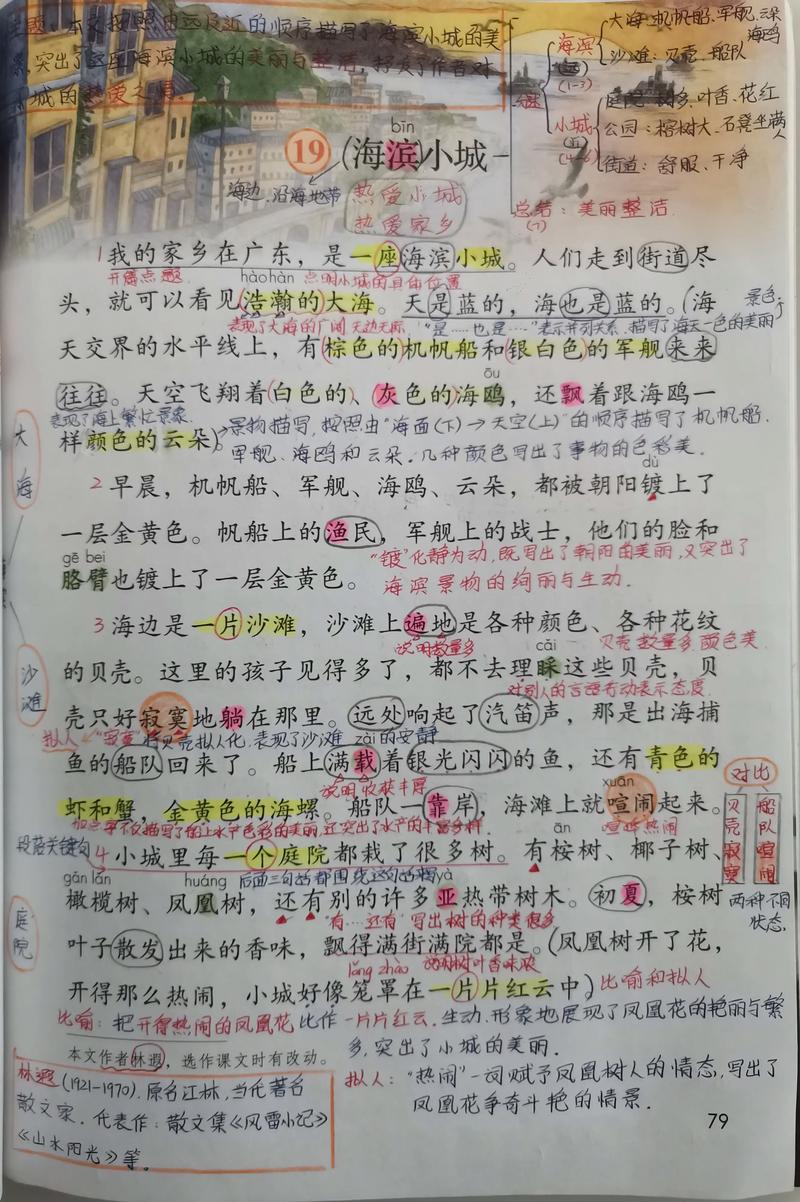 主题：本文按照由远及近的顺序描写了海滨小城的美
景，突出了这座海滨小城的美丽与整洁，抒发了作者对
小城的热爱之情。
海滨
(远)
(1-3)
大海：机帆船、军舰、云朵
海鸥
沙滩：贝壳、船队
小城
(近)
(4-6)
庭院：树多、叶香、花红
公园：榕树大、石凳坐满人
街道：舒服、干净
总结：美丽整洁
(7)
bīn
19 (海滨)小城
海边、沿海地带
热爱小城
热爱家乡
1我的家乡在广东，是一座海滨小城。人们走到街道尽
开篇点题 hàohàn 点明小城的具体位置
头，就可以看见浩瀚的大海。天是蓝的，海也是蓝的。(海
景色
表现了大海的广阔无边无际 "是……也是……"表示并列关系、描写了海天一色的美丽
天交界的水平线上，有棕色的机帆船和银白色的军舰来来
ōu
往往。天空飞翔着白色的、灰色的海鸥，还飘着跟海鸥一
表现了海上繁忙景象
样颜色的云朵)。
景物描写，按照由"海面(下)→天空(上)"的顺序描写了机帆船、
军舰、海鸥和云朵。几种颜色写出了事物的色彩美.
大海
dù
2早晨，机帆船、军舰、海鸥、云朵，都被朝阳镀上了
一层金黄色。帆船上的渔民，军舰上的战士，他们的脸和
gē bei
"镀"化静为动，既写出了朝阳的美丽，又突出了
胳臂也镀上了一层金黄色。
海滨景物的绚丽与生动.
3海边是一片沙滩，沙滩上遍地是各种颜色、各种花纹
说明数量多 cǎi 贝壳数量多颜色美
的贝壳。这里的孩子见得多了，都不去理睬这些贝壳，贝
沙滩
对别人的言语行动表示态度.
壳只好寂寞地躺在那里。远处响起了汽笛声，那是出海捕
拟人 "寂寞"将贝壳拟人化，表现了沙滩 zài 的安静
鱼的船队回来了。船上满载着银光闪闪的鱼，还有青色的
说明收获丰厚 xuān
虾和蟹，金黄色的海螺。船队一靠岸，海滩上就喧闹起来。
喧哗热闹
对比
贝壳寂寞
船队喧闹
两种不同
状态.
段落关键句 ān
4小城里每一个庭院都栽了很多树。有桉树、椰子树、
gǎn lǎn huáng 后面三句话都围绕这句话写 yà
橄榄树、凤凰树，还有别的许多亚热带树木。初夏，桉树
"有…还有"写出树的种类很多
庭院
叶子散发出来的香味，飘得满街满院都是。(凤凰树开了花，
lǒng zhào 说明树叶香味浓
开得那么热闹，小城好像笼罩在一片片红云中)
比喻和拟人
比喻：把开得热闹的凤凰花比作一片片红云.生动、形象地展现了凤凰花的艳丽与繁
多，突出了小城的美丽.
本文作者林遐，选作课文时有改动。
拟人："热闹"一词赋予凤凰树人的情态，写出了
凤凰花争奇斗艳的情景.
林遐(1921-1970).原名江林，当代著名
散文家.代表作：散文集《风雷小记》
《山水阳光》等。
79